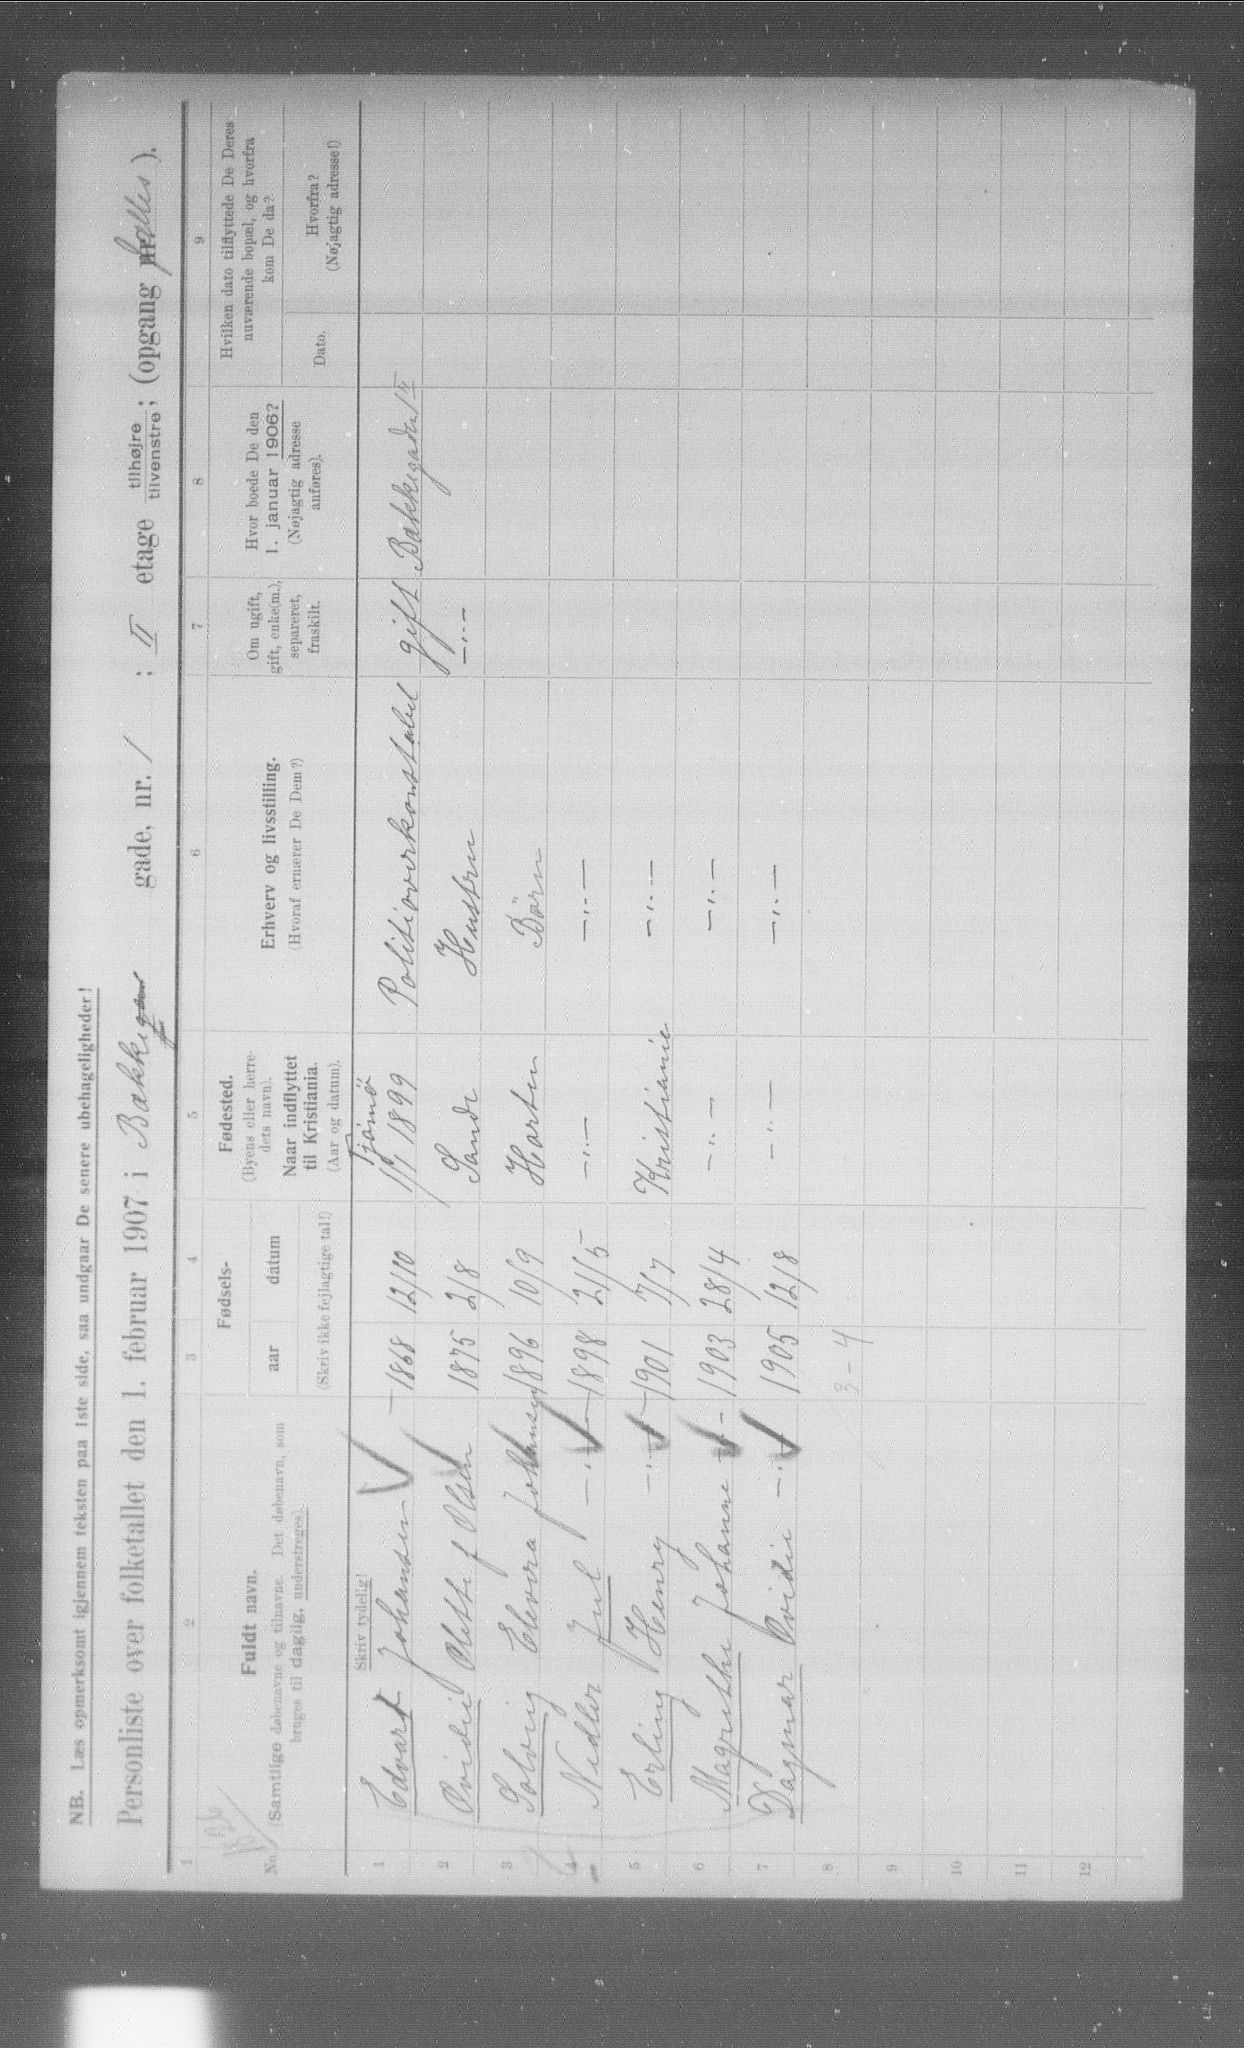 NB. Læs opmerksomt igjennem teksten paa 1ste side, saa undgaar De senere ubehageligheder!
Personliste over folketallet den 1. februar 1907 i Bakkegaden gade, nr. 1 ; II etage tilhøjre tilvenstre ; (opgang nr. fælles ).
1 2 3 4 5 6 7 8 9
No.
Fuldt navn.
(Samtlige døbenavne og tilnavne. Det døbenavn, som
bruges til daglig, understreges).
Fødsels-
aar datum
(Skriv ikke fejlagtige tal!)
Fødested.
(Byens eller herre-
dets navn).
Naar indflyttet
til Kristiania.
(Aar og datum).
Erhverv og livsstilling.
(Hvoraf ernærer De Dem?)
Om ugift,
gift, enke(m.),
separeret,
fraskilt.
Hvor boede De den
1. januar 1906?
(Nøjagtig adresse
anføres).
Hvilken dato tilflyttede De Deres
nuværende bopæl, og hvorfra
kom De da?
Dato.
Hvorfra?
(Nøjagtig adresse!)
Skriv tydelig!
1 Edvart Johansen 1868 12/10 Tjømø 1/1 1899 Politioverkonstabel gift Bakkegaden 1 II
2 Ovidia Olette f Olsen 1875 2/8 Sande Hustru -"-
3 Solveig Elevira Johansen 1896 10/9 Horten Börn
4 Nidler Juul -"- 1898 21/5 -"- -"-
5 Erling Henry -"- 1901 7/7 Kristiania -"-
6 Magrethe Johanne -"- 1903 28/4 -"- -"-
7 Dagmar Ovidie -"- 1905 12/8 -"- -"-
8 3-4
9
10
11
12